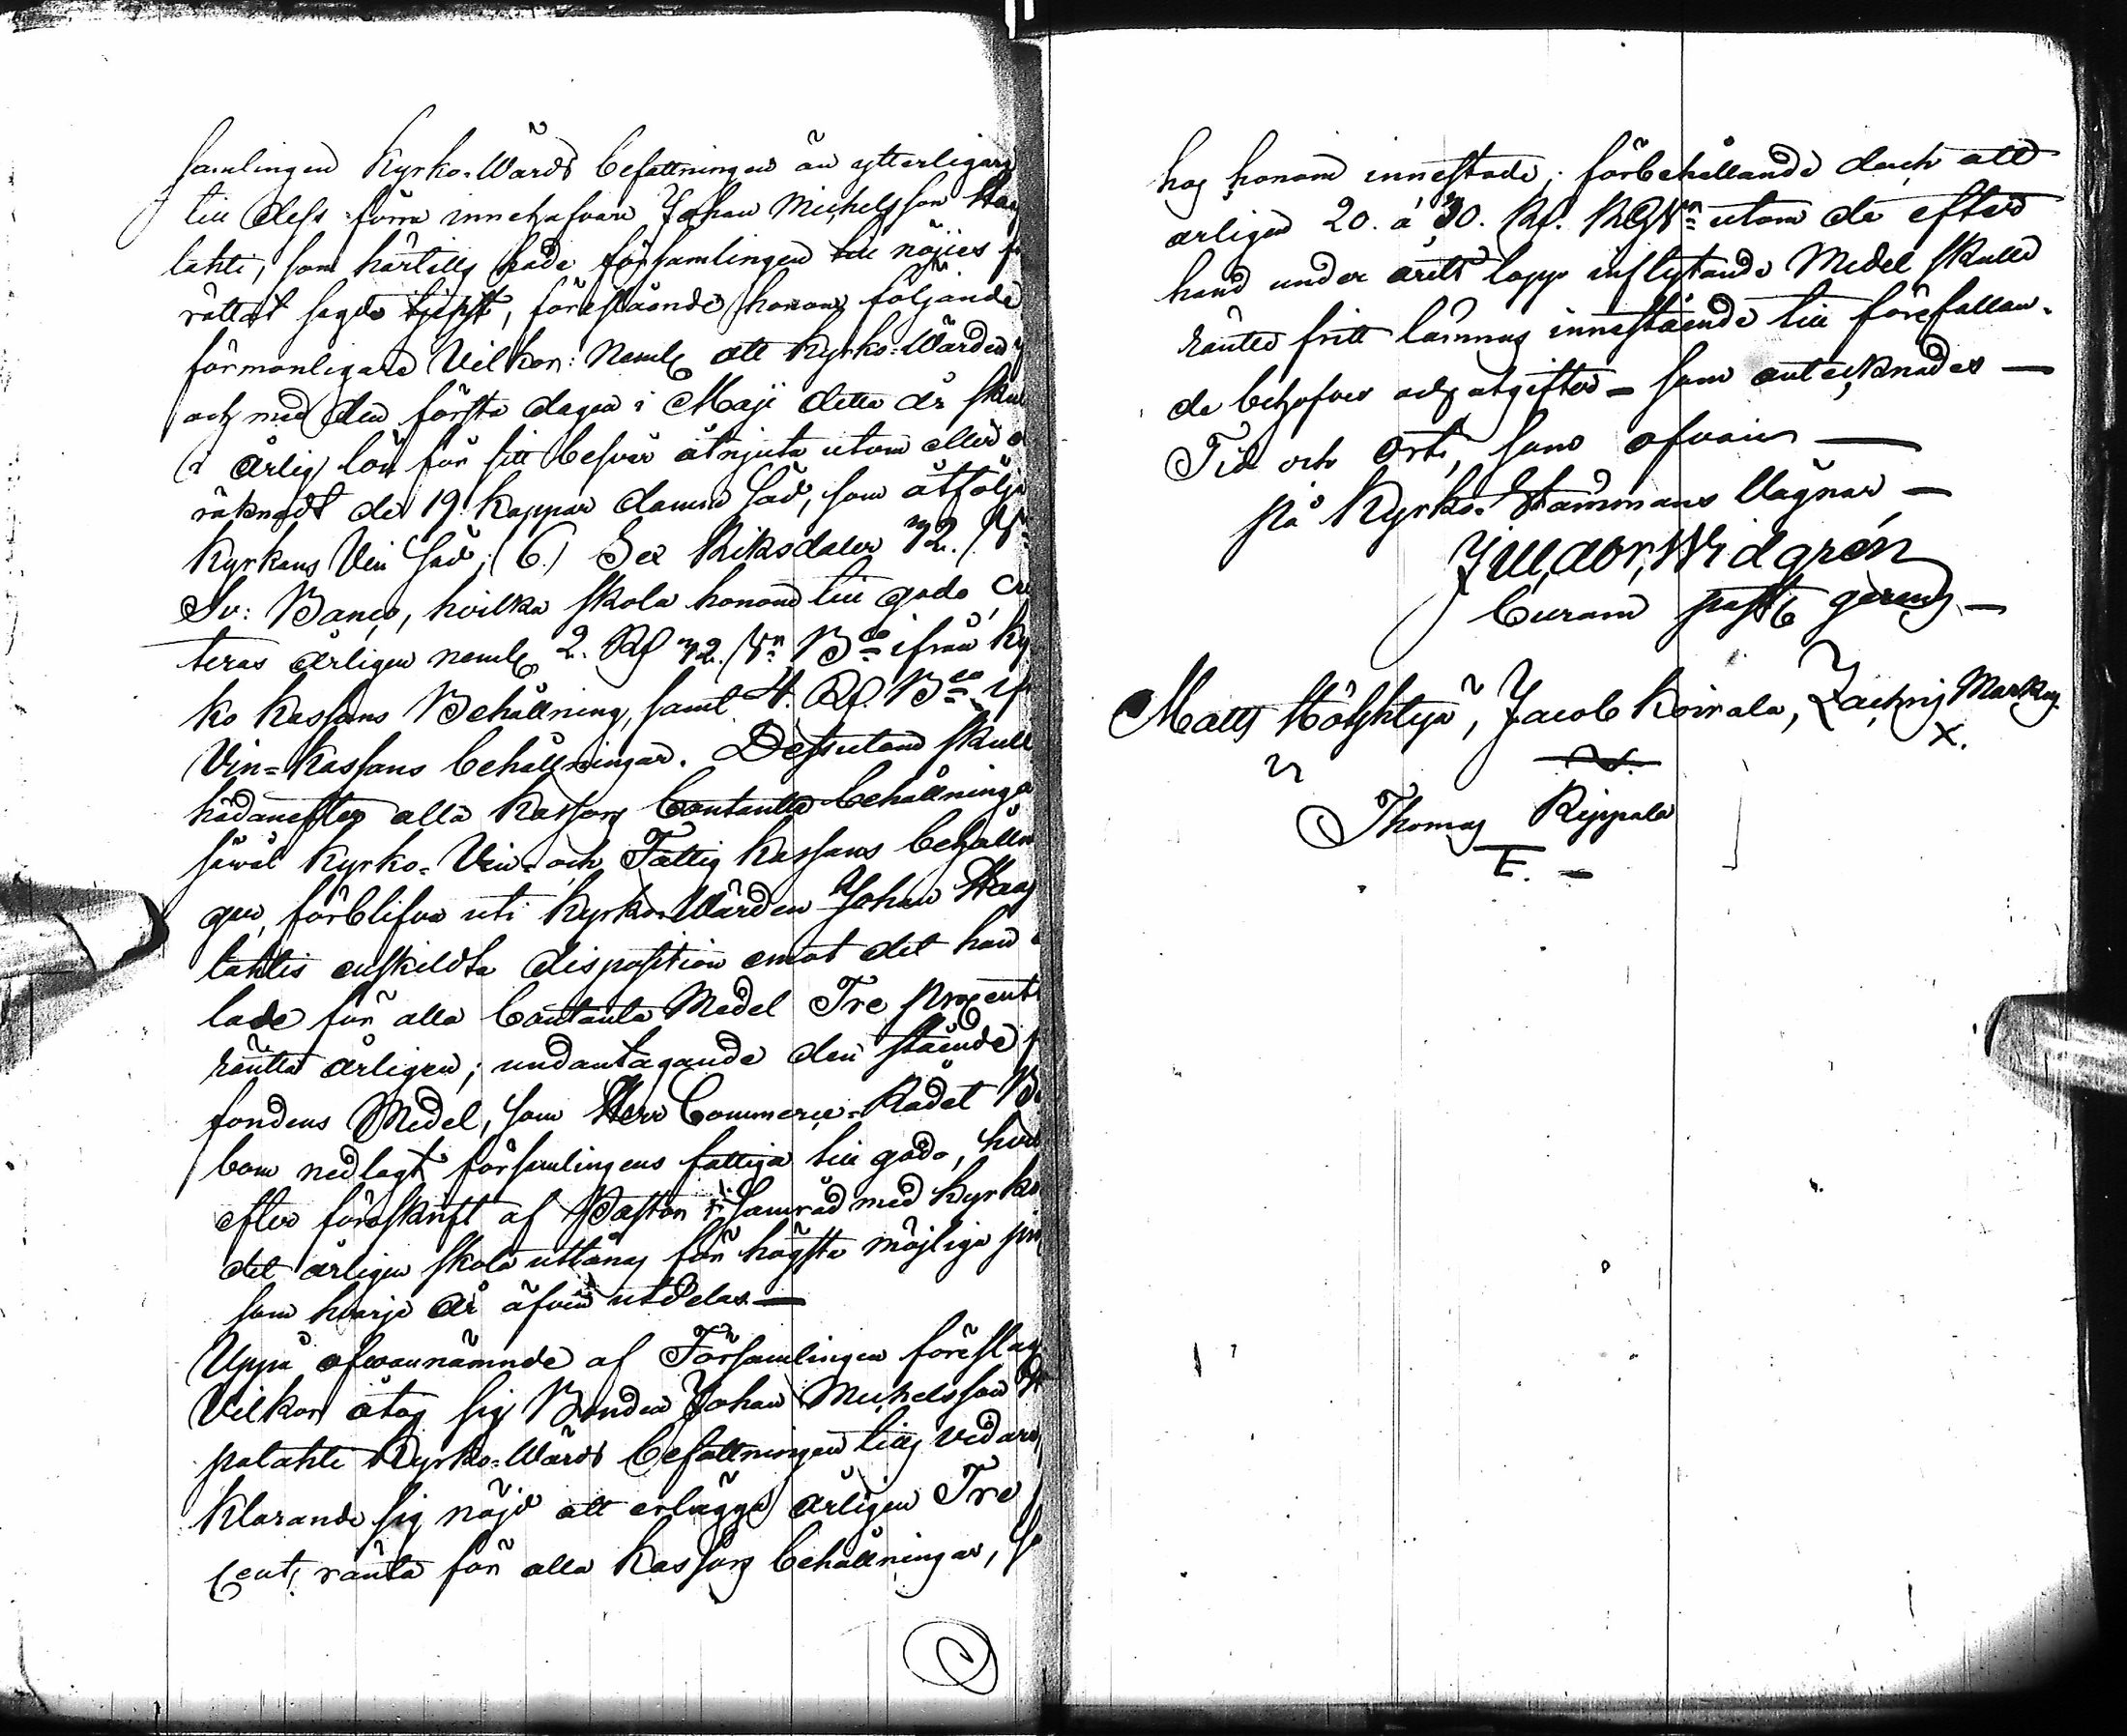 samlingen Kyrko-Wärds befattningen än ytterligare
till dess förra innehafvare Johan Michelsson Haap
lahti, som härtills hade församlingen till nöjies för
rättat sagde tjenst, föreslående honom följande
förmonligare Vilkor: neml. att Kyrko-Wärden
och med den första dagen i Maji detta år skul
i årlig lön för sitt besvär åtnjuta utom eller o
räknadt de 19 kappar damm säd, som åtfölja
Kyrkans Vin säd, (6.) Sex Riksdaler 32.
Sv: Banco, hvilka skola honom till godo cre
teras årligen neml. 2. Rd 32. Bco ifrån Kyr
ko Kassans Behållning, samt 4. Rd. Bco if
Vin-Kassans behållningar. Dessutom skull
hädanefter alla Kassors Contanta behållninga
såväl Kyrko- Vin- och Fattig Kassans behålln
gar, förblifva uti Kyrko-Wärden Johan Haap
lahtis enskildta disposition emot det han
lade för alla Contanta Medel Tre procents
ränta årligen; undantagande den stående f
fondens Medel, som Herr Commerce-Rådet B
bom nedlagt församlingens fattiga till godo, hvil
efter föreskrift af Pastor i samråd med Kyrko
det årligen skola utlånas för högsta möjliga pro
som hvarje år äfven utdelas —
Uppå ofvannämnde af Församlingen föreslag
Vilkor åtog sig Bonden Johan Michelsson H
palahti Kyrko-Wärds befattningen tills vidare,
klarande sig nöjd att erlägga årligen Tre
Cent ränta för alla Kassors behållningar, s
hos honom innestode; förbehållande doch att
årligen 20. à 30. Rd. RGS utom de efter
hand under årets lopp inflytande Medel skulle
räntefritt lämnas innestående till förefallan-
de behofver och utgifter – som antecknades —
Tid och Ort, som ofvan —
på Kyrko-Stämmans Vägnar —
Widgrén
Curam past. gerens —
Matts Jacob Koivala, Zachris
X.
Thomas Rippala
T. —